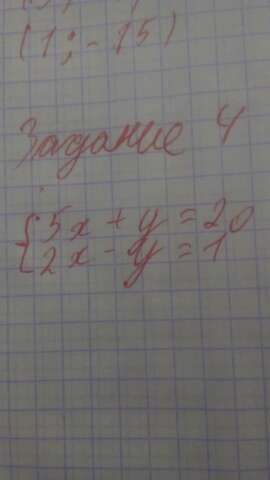 (1; -15)
Задание 4
{5x + y = 20
2x - y = 1